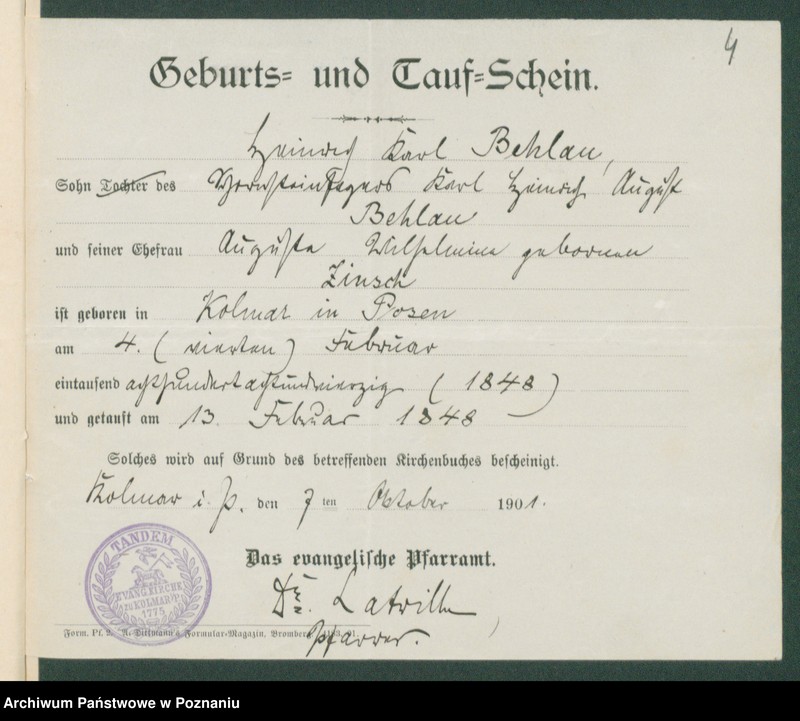 4
Geburts- und Tauf-Schein.
Heinrich Karl Behlau,
Sohn Tochter des Karl Heinrich August
Behlau
und seiner Ehefrau Auguste Wilhelmine geborenen
Zinsch
ist geboren in Kolmar in Posen
am 4. (vierten) Februar
eintausend achthundertachtundvierzig (1848)
und getauft am 13. Februar 1848
Solches wird auf Grund des betreffenden Kirchenbuches bescheinigt.
Kolmar i. P. den 7 ten Oktober 1901.
Das evangelische Pfarramt.
Dr. Latrille
Pfarrer.
TANDEM
EVANG. KIRCHE
ZU KOLMAR i/P.
1775
Form. Pf. 2. A. Dittmann's Formular-Magazin, Bromberg.
Archiwum Państwowe w Poznaniu